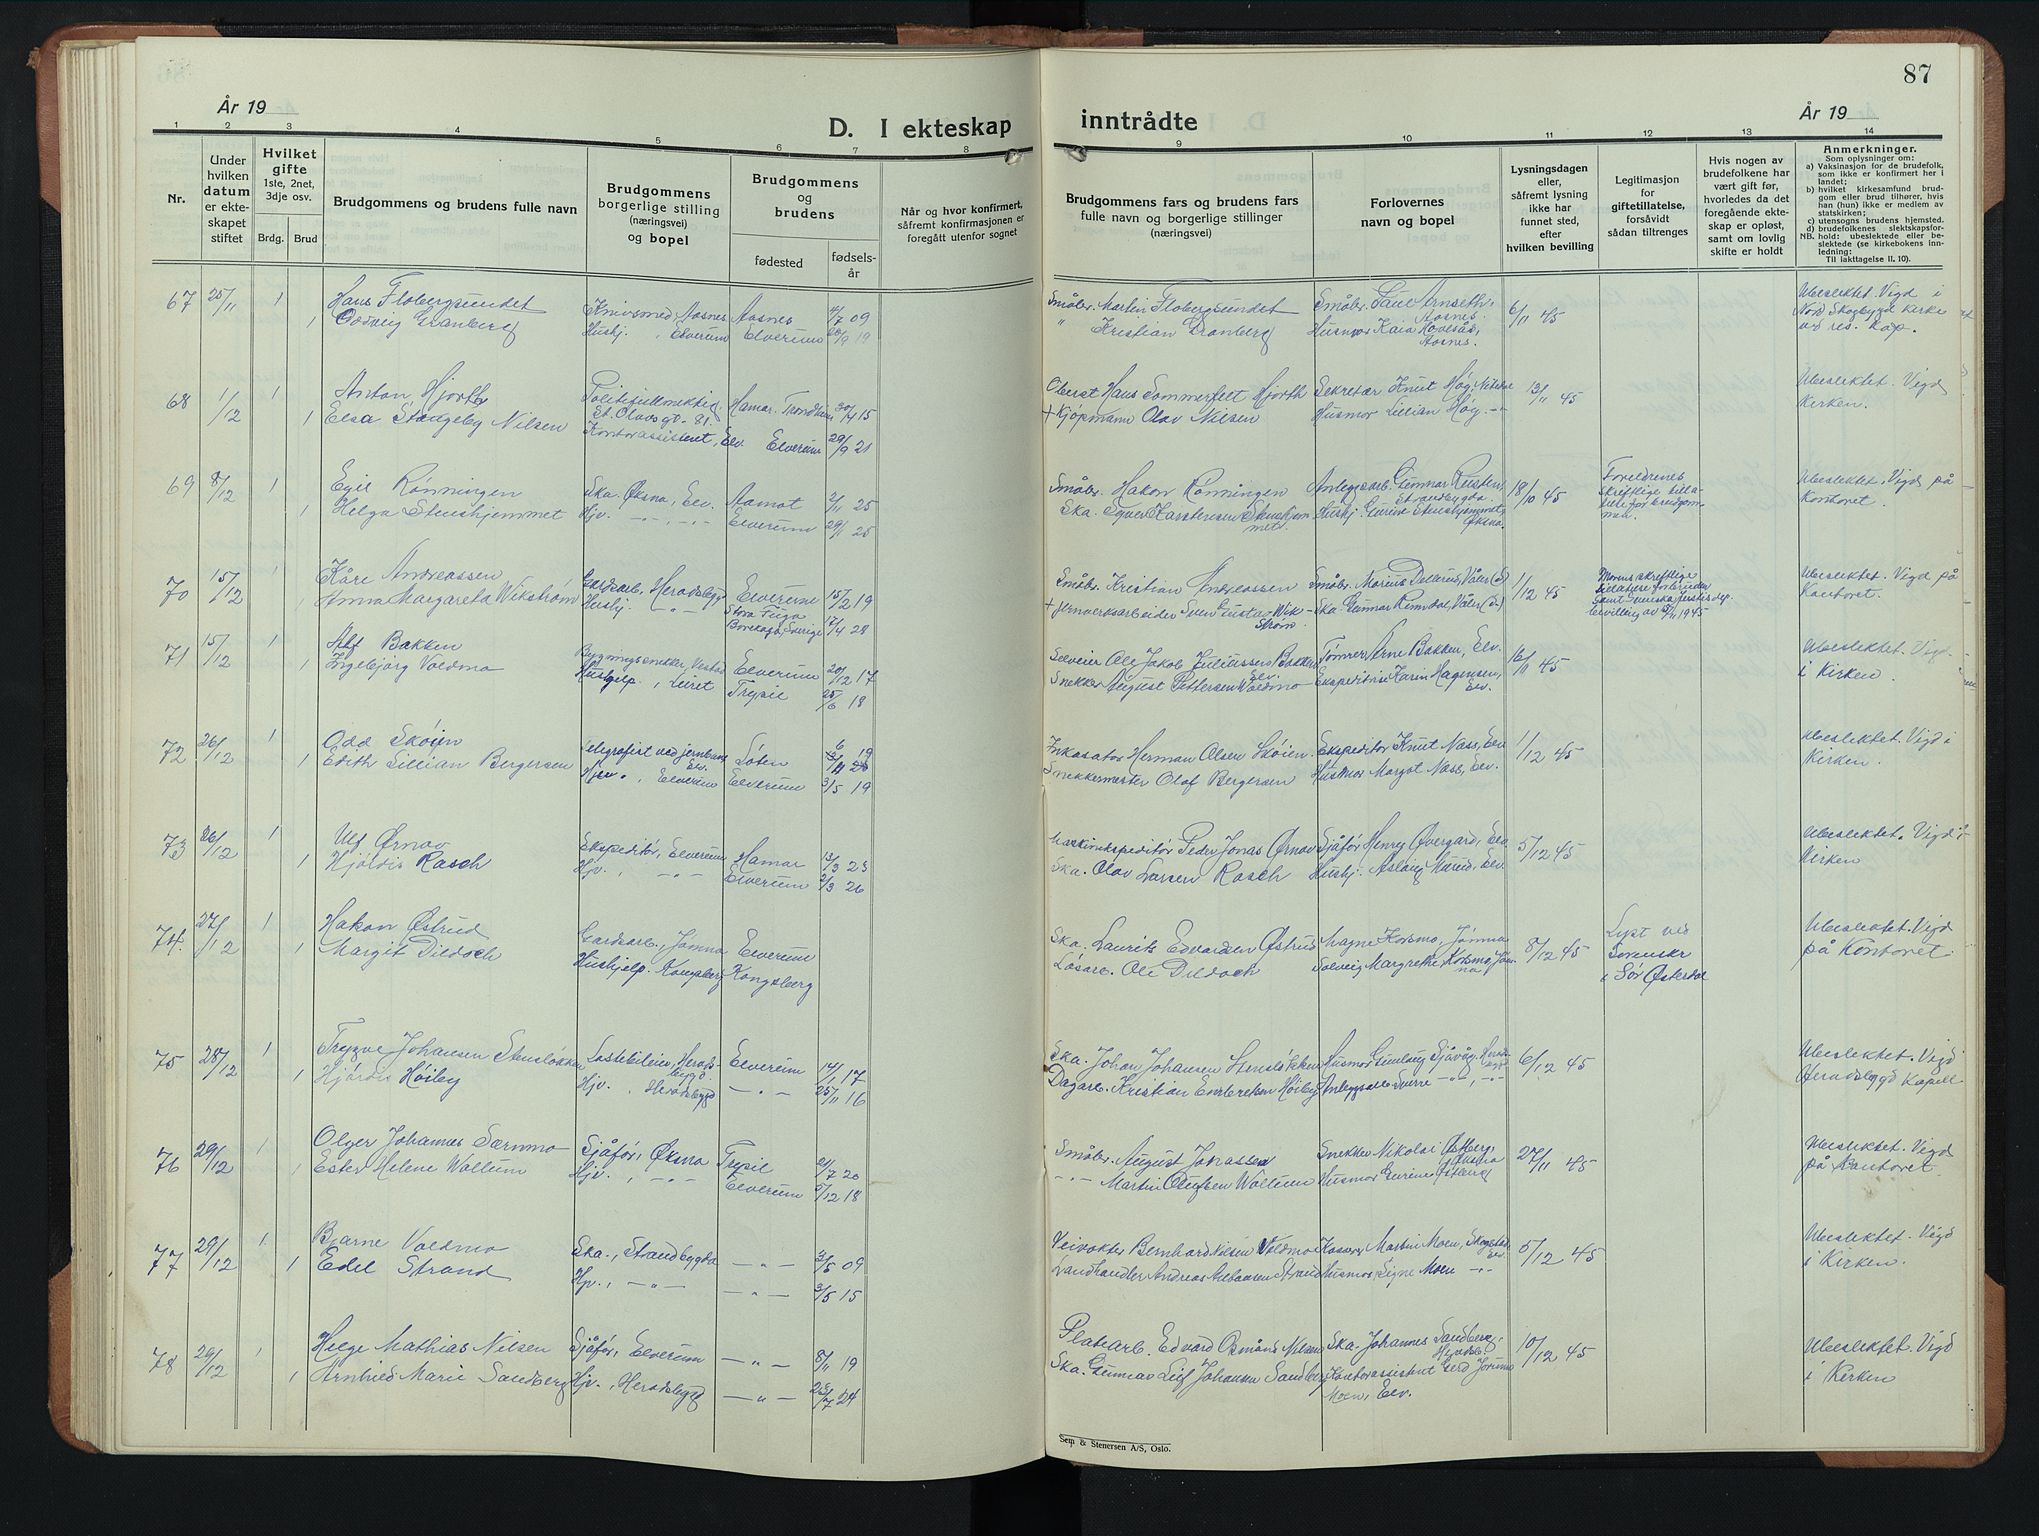 87
År 19
År 19
D. I ekteskap inntrådte
1 2 3 4 5 6 7 8 9 10 11 12 13 14
Nr.
Under hvilken datum er ekteskapet stiftet
Hvilket gifte 1ste, 2net, 3dje osv.
Brdg. Brud
Brudgommens og brudens fulle navn
Brudgommens borgerlige stilling (næringsvei) og bopel
Brudgommens og brudens
fødested
fødselsår
Når og hvor konfirmert, såfremt konfirmasjonen er foregått utenfor sognet
Brudgommens fars og brudens fars fulle navn og borgerlige stillinger (næringsvei)
Forlovernes navn og bopel
Lysningsdagen eller, såfremt lysning ikke har funnet sted, efter hvilken bevilling
Legitimasjon for giftetillatelse, forsåvidt sådan tiltrenges
Hvis nogen av brudefolkene har vært gift før, hvorledes da det foregående ekteskap er opløst, samt om lovlig skifte er holdt
Anmerkninger.
Som oplysninger om:
a) Vaksinasjon for de brudefolk, som ikke er konfirmert her i landet;
b) hvilket kirkesamfund brudgom eller brud tilhører, hvis han (hun) ikke er medlem av statskirken;
c) utensogns brudens hjemsted.
d) brudefolkenes slektskapsforhold: ubeslektede eller beslektede (se kirkebokens innledning;
NB. Til iakttagelse II. 10).
67 25/11 1 Hans Flobergsundet Knivsmed, Aasnes Aasnes 09 Småbr. Martin Flobergsundet Småbr. Paul Arnseth, Aasnes 6/11 45 Ubeslektet. Vigd i
1 Oddveig Granberg Hushj. , Elverum Elverum 19 " Kristian Granberg Husmor Kaia Aasnes. Nord Skogbygd kirke
ved res. kap.
68 1/12 1 Anton Hjorth St. Olavs gt. 81. Hamar. Trondheim 30/4 15 Oberst Hans Sommerfelt Hjorth Sekretær Knut Høg, 13/11 45 Ubeslektet. Vigd
1 Elsa Stangeby Nilsen Kontorassistent, Elv. Elverum 29/9 21 + Kjøpmann Olav Nilsen Husmor Lillian Høg -"- Kirken.
69 8/12 1 Egil Rønningen Ska. Øksna, Elv. Aamot 2/11 25 Småbr. Hakon Rønningen Anlegsarb. Gunnar Strandbygda 18/10 45 Foreldrenes skriftlige Ubeslektet. Vigd på
1 Helga Stenshjemmet Hjv. -"-, -"- Elverum 29/1 25 Ska. Hushj. Gurine Stenshjemmet, Øksna kontoret.
70 15/12 1 Kåre Andreassen Gardsarb. Heradsbygd Elverum 15/2 19 Småbr. Kristian Andreassen Småbr. Marius Våler (S) 1/12 45 Morens skriftlige Ubeslektet. Vigd på
1 Anna Margareta Wikstrøm Hushj. -"- Sverige 17/4 28 + jernverksarbeider Sven Gustav Wikstrøm Ska. Gunnar Våler (S) Kontoret.
71 15/12 1 Alf Bakken Elverum 20/12 17 Selveier Ole Jakob Juliussen Bakken Elv. Tømmer Arne Bakken, Elv. 45 Ubeslektet. Vigd
1 Ingebjørg Voldmo Hushjelp. , Leiret Trysil 25/6 18 Snekker August Pettersen Voldmo Ekspeditrise Karin Hagensen, Elv. i Kirken.
72 26/12 1 Odd Skøien Telegrafist ved jernbanen Elv. Løten 19 Inkasator Herman Olsen Skøien Ekspeditør Knut Næss, Elv 1/12 45 Ubeslektet. Vigd i
1 Edith Lillian Bergersen Hjv. , Elverum Elverum 3/5 19 Snekkermester Olaf Bergersen Husmor Margot Næss, Elv. Kirken.
73 26/12 1 Ulf Ørnov Ekspeditør, Elverum Hamar 13/3 Peder Jonas Ørnov Sjåfør Henry Øvergard, Elv 5/12 45 Ubeslektet. Vigd i
1 Hjørdis Rasch Hjv. , -"- Elverum 2/3 26 Ska. Olav Larsen Rasch Hushj. Aslaug Elv. Kirken
74. 27/12 1 Hakon Østrud Gardsarb., Jømna Elverum Ska. Laurits Edvardsen Østrud Magne Korsmo, Jømna 8/12 45 Lyst ved Sorenskr Ubeslektet. Vigd
1 Margit Dildoch Hushjelp. Kongsberg Kongsberg Løsarb. Ole Dildoch Solveig Margrethe Korsmo, Jømna i Sør Østerdal på Kontoret.
75 28/12 1 Trygve Johansen Stensløkken Lastebileier, Heradsbygd. Elverum 14/1 17 Ska. Johan Johansen Stensløkken Husmor Gunlaug Sjåvåg, 6/12 45 Ubeslektet. Vigd i
1 Hjørdis Høiby Hjv. , Heradsbygd -"- 25/11 16 Dagarb. Kristian Embretsen Høiby Anleggsarb Sverre -"-, -"- Heradsbygd Kapell
76 29/12 1 Olger Johannes Særnmo Sjåfør, Øksna Trysil 21/7 20 Småbr. August Jonassen Snekker Nikolai Østberg, Øksna 27/11 45 Ubeslektet. Vigd
1 Ester Helene Wollum Hjv. , -"- Elverum 5/12 18 -"- Martin Olufsen Wollum Husmor Gurine Østberg på Kontoret
77 29/12 1 Bjarne Voldmo Ska., Strandbygda -"- 3/5 09 Veivokter Bernhard Nilsen Voldmo Martin Moen, Elv. 5/12 45 Ubeslektet. Vigd
1 Edel Strand Hjv., -"- -"- 3/5 15 Landhandler Andreas Strand Husmor, Signe Moen -"- i Kirken.
78 29/12 1 Helge Mathias Nilsen Sjåfør, Elverum -"- 8/11 19 Platearb. Edvard Nilsen Ska. Johannes Sandberg, 10/12 45 Ubeslektet. Vigd
1 Arnhild Marie Sandberg Hjv. , Heradsbygd -"- 24 Ska. Gunnar Leif Johansen Sandberg Kontorassistent Gerd Jorunn Moen, Elv. i Kirken
Sem & Stenersen A/S, Oslo.